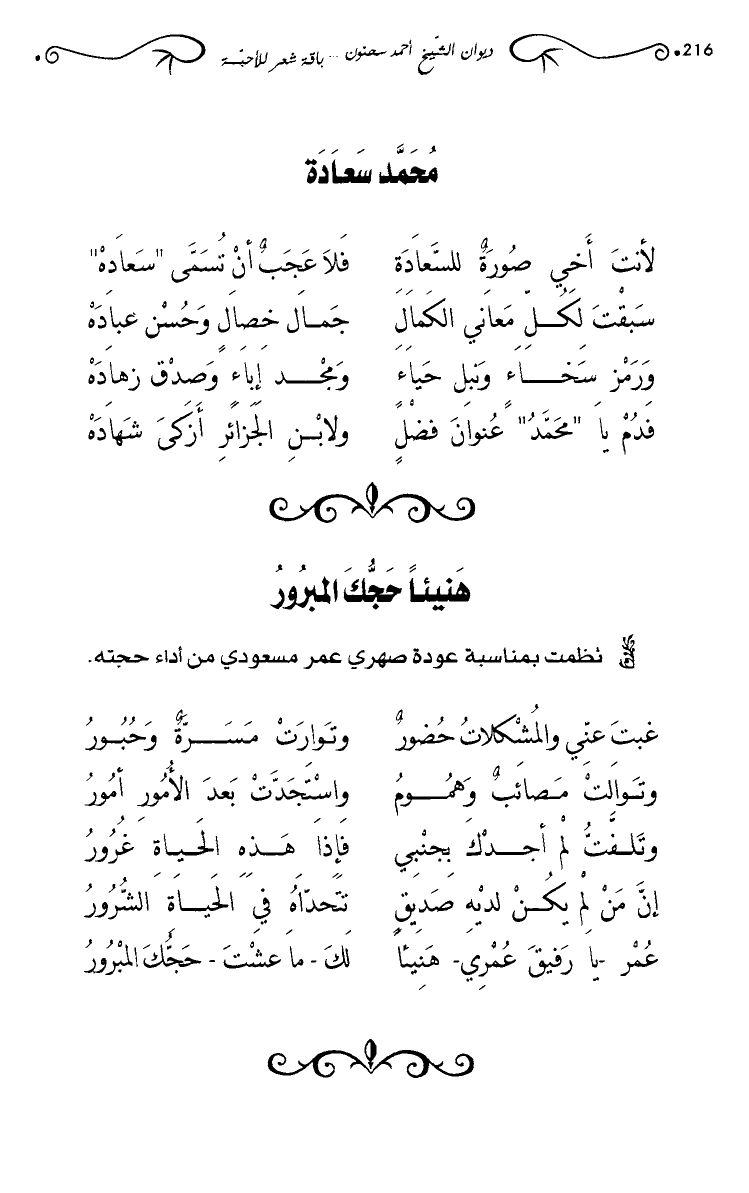 216 ديوان الشيخ أحمد سحنون ... باقة شعر للأحبّة
مُحَمَّد سَعادَة
لأنتَ أَخي صُورَةٌ للسَّعادَة فَلاَ عَجَبٌ أنْ تُسَمَّى "سَعادَهْ"
سَبَقْتَ لِكُلِّ مَعاني الكَمالِ جَمال خِصالٍ وَحُسْن عِبادَهْ
وَرَمْز سَخَاءٍ وَنبل حَياءٍ وَمَجْد إباءٍ وَصِدْق زهادَهْ
فَدُمْ يا "محَمَّدُ" عُنوانَ فضْلٍ ولابْنِ الجَزائرِ أزكىَ شَهادَهْ
هَنيئاً حَجُّكَ المبرُورُ
نظمت بمناسبة عودة صهري عمر مسعودي من أداء حجته.
غبتَ عنّي والمُشْكلاتُ حُضورٌ وتوارَتْ مَسَرَّةٌ وَحُبُورُ
وتوالتْ مَصائبٌ وَهُمُومُ واسْتَجَدَّتْ بَعدَ الأُمُورِ أمُورُ
وتَلفَّتُّ لمْ أجدْكَ بِجنْبي فَإذا هَذِهِ الحَياةِ غرُورُ
إنَّ مَنْ لمْ يكُنْ لديْهِ صَديقٍ تتحدّاهُ في الحَياةِ الشُّرُورُ
عُمْر -يا رَفيقَ عُمْرِي- هَنِيئاً لكَ - ما عشْتَ - حَجُّكَ المَبْرُورُ